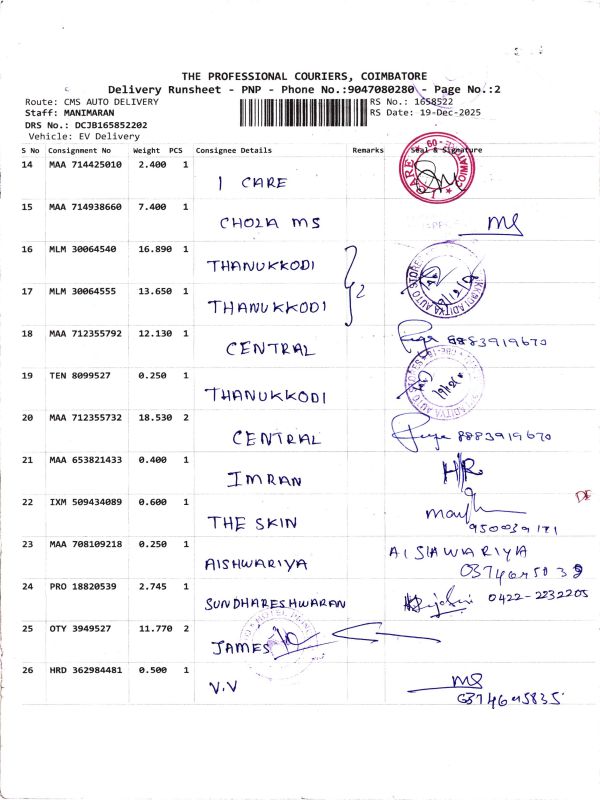 THE PROFESSIONAL COURIERS, COIMBATORE
Delivery Runsheet - PNP - Phone No.:9047080280 - Page No.:2
Route: CMS AUTO DELIVERY
RS No.: 1658522
Staff: MANIMARAN
RS Date: 19-Dec-2025
DRS No.: DCJB165852202
Vehicle: EV Delivery
S No Consignment No Weight PCS Consignee Details Remarks Seal & Signature
14 MAA 714425010 2.400 1
I CARE
15 MAA 714938660 7.400 1
CHOLA MS
16 MLM 30064540 16.890 1
THANUKKODI
17 MLM 30064555 13.650 1
THANUKKODI
2
18 MAA 712355792 12.130 1
CENTRAL
8883919670
19 TEN 8099527 0.250 1
THANUKKODI
20 MAA 712355732 18.530 2
CENTRAL
8883919670
21 MAA 653821433 0.400 1
IMRAN
22 IXM 509434089 0.600 1
THE SKIN
23 MAA 708109218 0.250 1
AISHWARIYA
24 PRO 18820539 2.745 1
SUNDHARESHWARAN
0422-2232205
25 OTY 3949527 11.770 2
JAMES
26 HRD 362984481 0.500 1
V.V